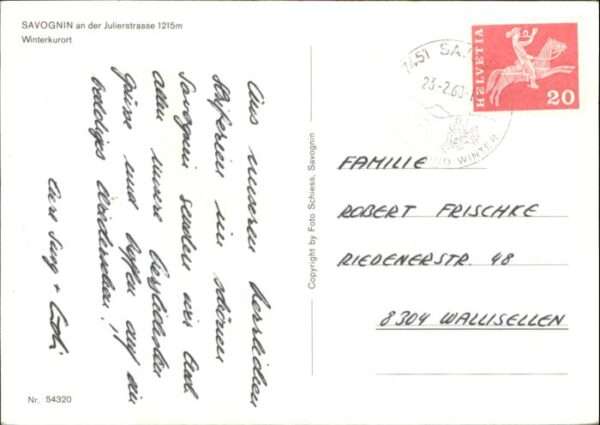 SAVOGNIN an der Julierstrasse 1215m
Winterkurort
Aus unseren herrlichen
Skiferien im schönen
Savognin senden wir Euch
allen unsere herzlichsten
Grüsse und hoffen auf ein
baldiges Wiedersehen!
Eure
Copyright by Foto Schiess, Savognin
Nr. 54320
7451 SA
23-2.6
WINTER
HELVETIA
20
FAMILIE
ROBERT FRISCHKE
RIEDENERSTR. 48
8304 WALLISELLEN